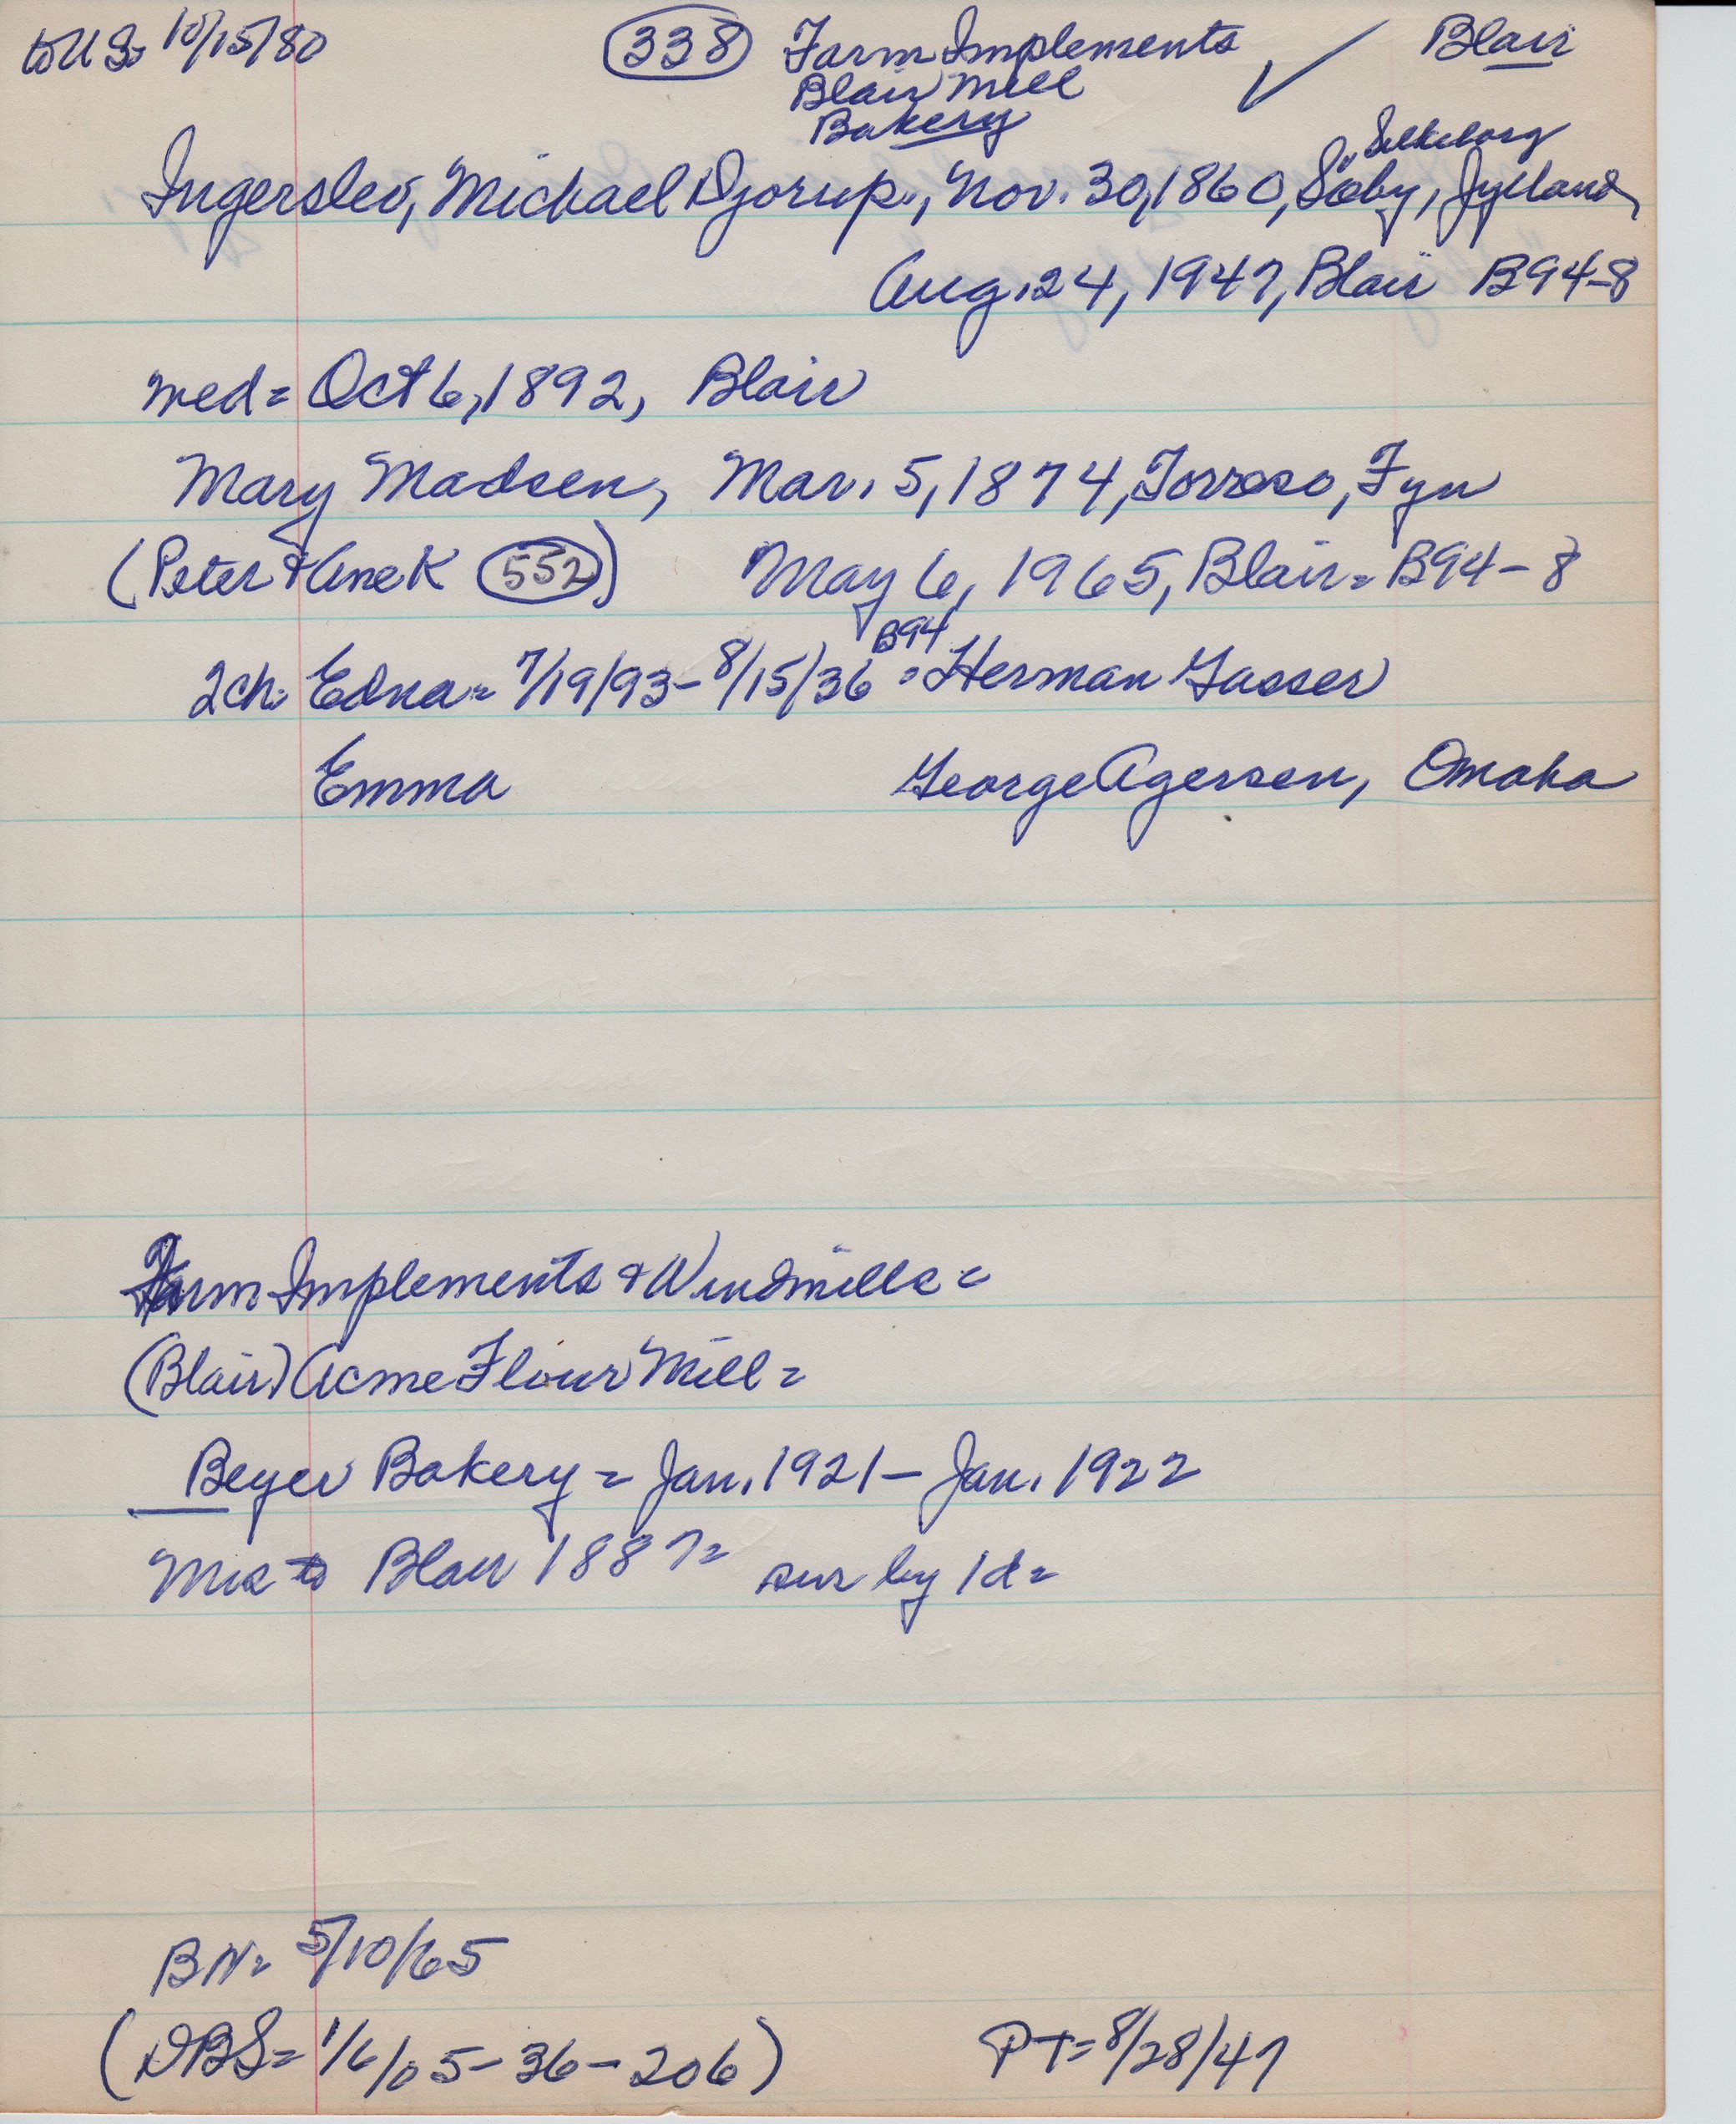 to U S= 10/15/80 (338) Farm Implements ✓ Blair
Blair Mill
Bakery
Silkeborg
Ingerslev, Michael Djorup, Nov. 30, 1860, Söby, Jylland
Aug. 24, 1947, Blair B94-8
med= Oct 6, 1892, Blair
Mary Madsen, Mar. 5, 1874, Torreso, Fyn
(Peter & Ane K (552)) May 6, 1965, Blair= B94-8
B94
2ch= Edna= 7/19/93-8/15/36 = Herman Gasser
Emma George Agersen, Omaha
Farm Implements & Windmills=
(Blair) Acme Flour Mill=
Beyer Bakery= Jan. 1921- Jan. 1922
to Blair 1887= sur by 1d=
BN= 5/10/65
(DBS= 1/6/05-36-206) PT= 8/28/47